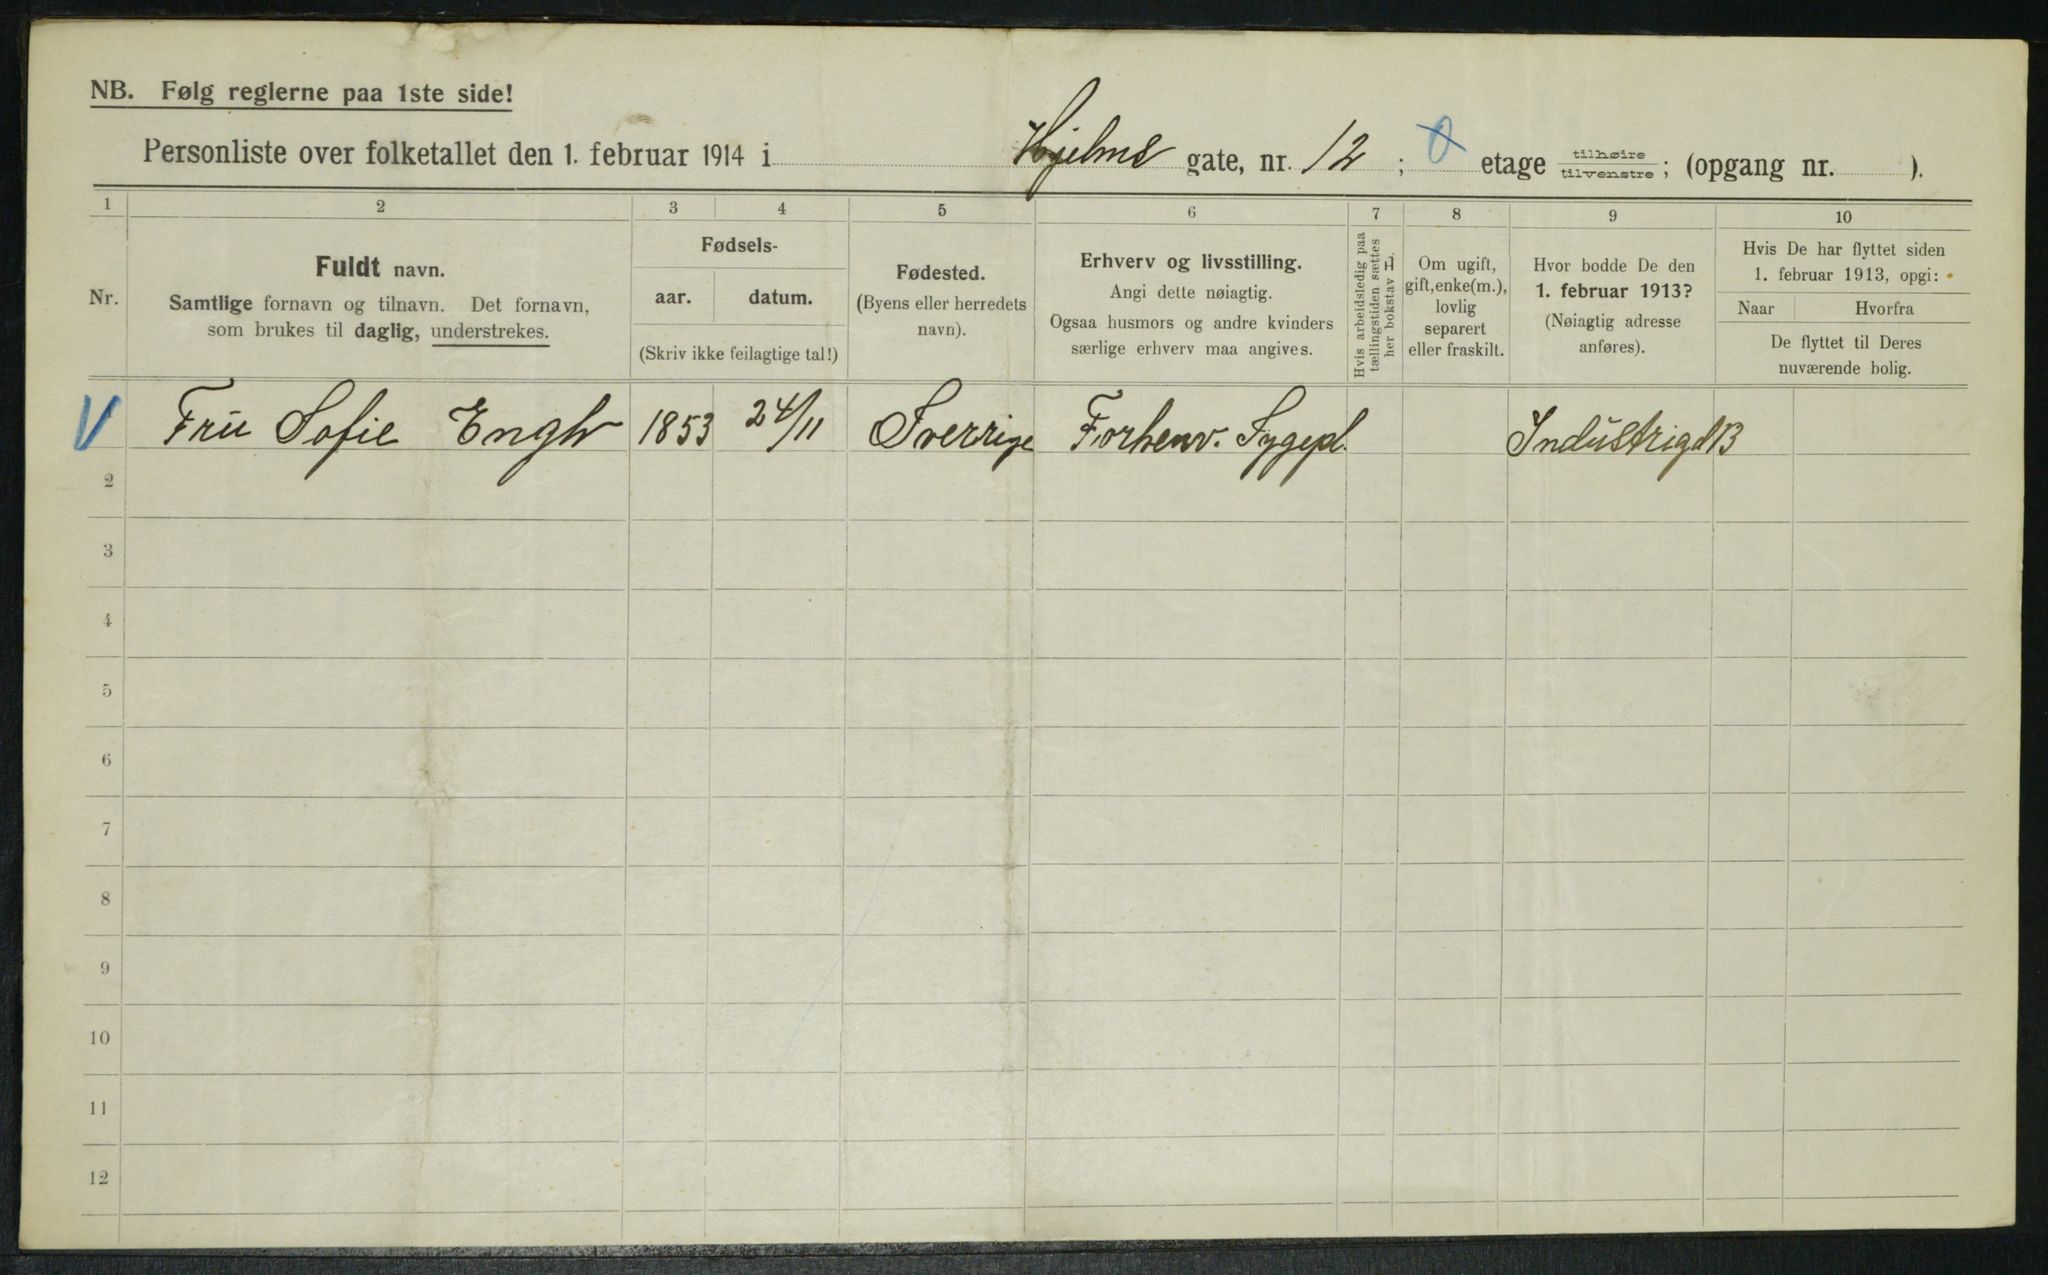 NB. Følg reglerne paa 1ste side!
Personliste over folketallet den 1. februar 1914 i Hjelms gate, nr. 12 ; etage tilhøire tilvenstre ; (opgang nr. ).
1 2 3 4 5 6 7 8 9 10
Nr.
Fuldt navn.
Samtlige fornavn og tilnavn. Det fornavn,
som brukes til daglig, understrekes.
Fødsels-
aar. datum.
(Skriv ikke feilagtige tal!)
Fødested.
(Byens eller herredets
navn).
Erhverv og livsstilling.
Angi dette nøiagtig.
Ogsaa husmors og andre kvinders
særlige erhverv maa angives.
Hvis arbeidsledig paa
tællingstiden sættes
her bokstav L.
Om ugift,
gift, enke(m.),
lovlig
separert
eller fraskilt.
Hvor bodde De den
1. februar 1913?
(Nøiagtig adresse
anføres).
Hvis De har flyttet siden
1. februar 1913, opgi:
Naar Hvorfra
De flyttet til Deres
nuværende bolig.
Fru Sofie Engh 1853 24/11 Sverrige Forhenv. Sygepl.
2
3
4
5
6
7
8
9
10
11
12